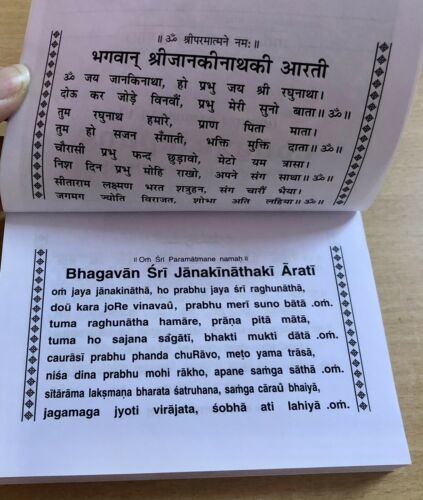 ॥ ॐ श्रीपरमात्मने नमः॥
भगवान् श्रीजानकीनाथकी आरती
ॐ जय जानकिनाथा, हो प्रभु जय श्री रघुनाथा।
दोऊ कर जोड़े विनवौं, प्रभु मेरी सुनो बाता॥ॐ॥
तुम रघुनाथ हमारे, प्राण पिता माता।
तुम हो सजन सँगाती, भक्ति मुक्ति दाता॥ॐ॥
चौरासी प्रभु फन्द छुड़ावो, मेटो यम त्रासा।
निश दिन प्रभु मोहि राखो, अपने संग साथा॥ॐ॥
सीताराम लक्ष्मण भरत शत्रुहन, संग चारौं भैया।
जगमग ज्योति विराजत, शोभा अति लहिया॥ॐ॥
॥ Oṁ Śrī Paramātmane namaḥ॥
Bhagavān Śrī Jānakīnāthakī Āratī
oṁ jaya jānakināthā, ho prabhu jaya śrī raghunāthā,
doū kara joRe vinavaū, prabhu merī suno bātā .oṁ.
tuma raghunātha hamāre, prāṇa pitā mātā,
tuma ho sajana sa̐gātī, bhakti mukti dātā .oṁ.
caurāsī prabhu phanda chuRāvo, meṭo yama trāsā,
niśa dina prabhu mohi rākho, apane saṁga sāthā .oṁ.
sītārāma lakṣmaṇa bharata śatruhana, saṁga cāraū bhaiyā,
jagamaga jyoti virājata, śobhā ati lahiyā .oṁ.